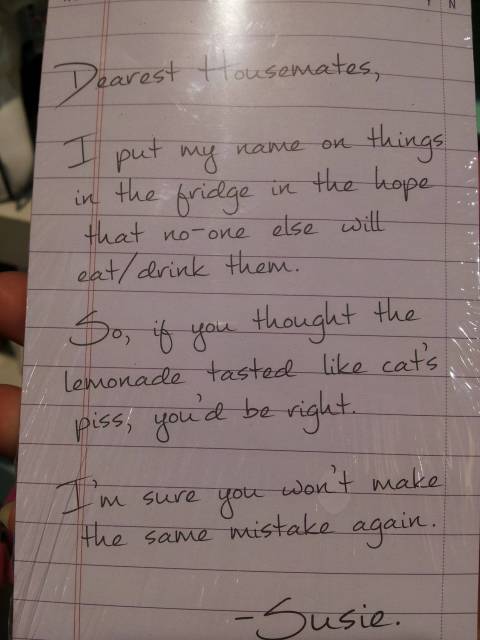 Dearest Housemates,
I put my name on things
in the fridge in the hope
that no-one else will
eat/drink them.
So, if you thought the
lemonade tasted like cat's
piss, you'd be right.
I'm sure you won't make
the same mistake again.
-Susie.